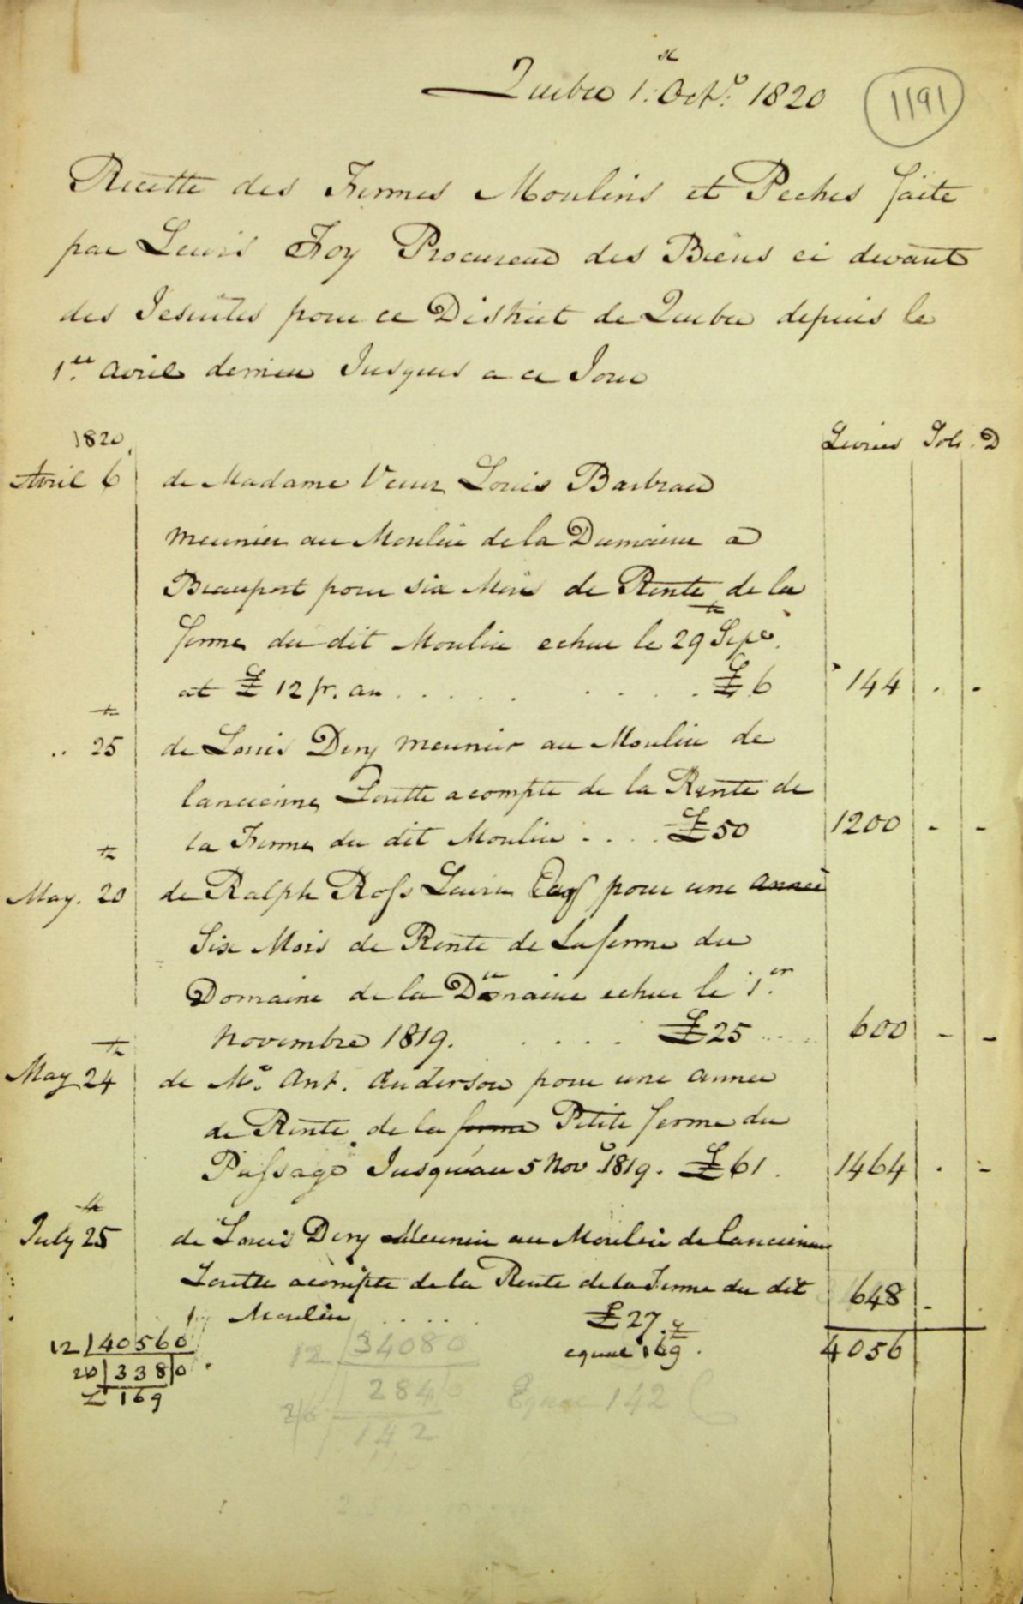 Quebec 1.st Octr. 1820
1191
Recette des Fermes Moulins et Peches faite
par Lewis Foy Procureur des Biens ci devant
des Jesuites pour ce District de Quebec depuis le
1er. avril dernier Jusques a ce Jour
1820.
Livres Sols D
Avril 6 de Madame Veuve Louis Barbeau
meunier au Moulin de la Dumaine a
Beauport pour six Mois de Rente de la
ferme du dit Moulin echue le 29th Sepr.
at £ 12 pr. an . . . . . . . . £ 6 144 . -
.. 25th de Louis Dery meunier au Moulin de
lancienne Lorette acompte de la Rente de
la Ferme du dit Moulin . . . . £ 50 1200 - -
May. 20th de Ralph Ross pour une année
Six Mois de Rente de La ferme du
Domaine de la Domaine echue le 1.er
Novembre 1819. . . . . £ 25 600 - -
May 24th de Mr. Ant. Anderson pour une annee
de Rente de la ferme Petite ferme du
Passage Jusqu'au 5 Novr 1819. £ 61. 1464 . -
July 25th de Louis Dery Meunier au Moulin de lancienne
Lorette acompte de la Rente de la Ferme du dit
Moulin . . . . . £ 27. 648 -
equal 169. 4056
12 | 40560
20 | 338|0
£ 169
12 | 34080
20 | 284|0
142
Equal 142